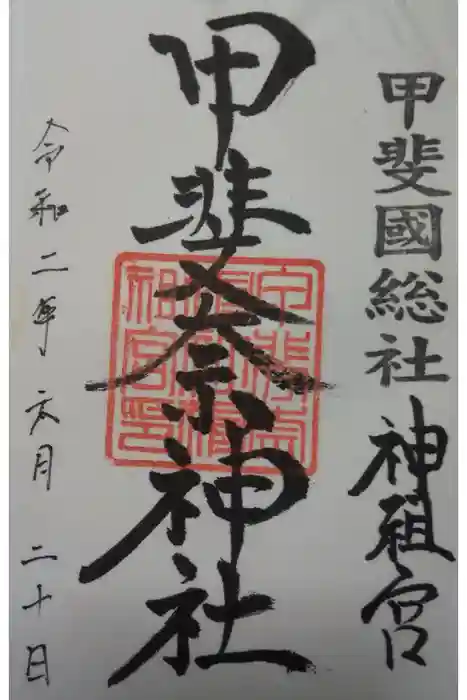 甲斐國総社 神祖宮
甲斐奈神社
令和二年 六月 二十日